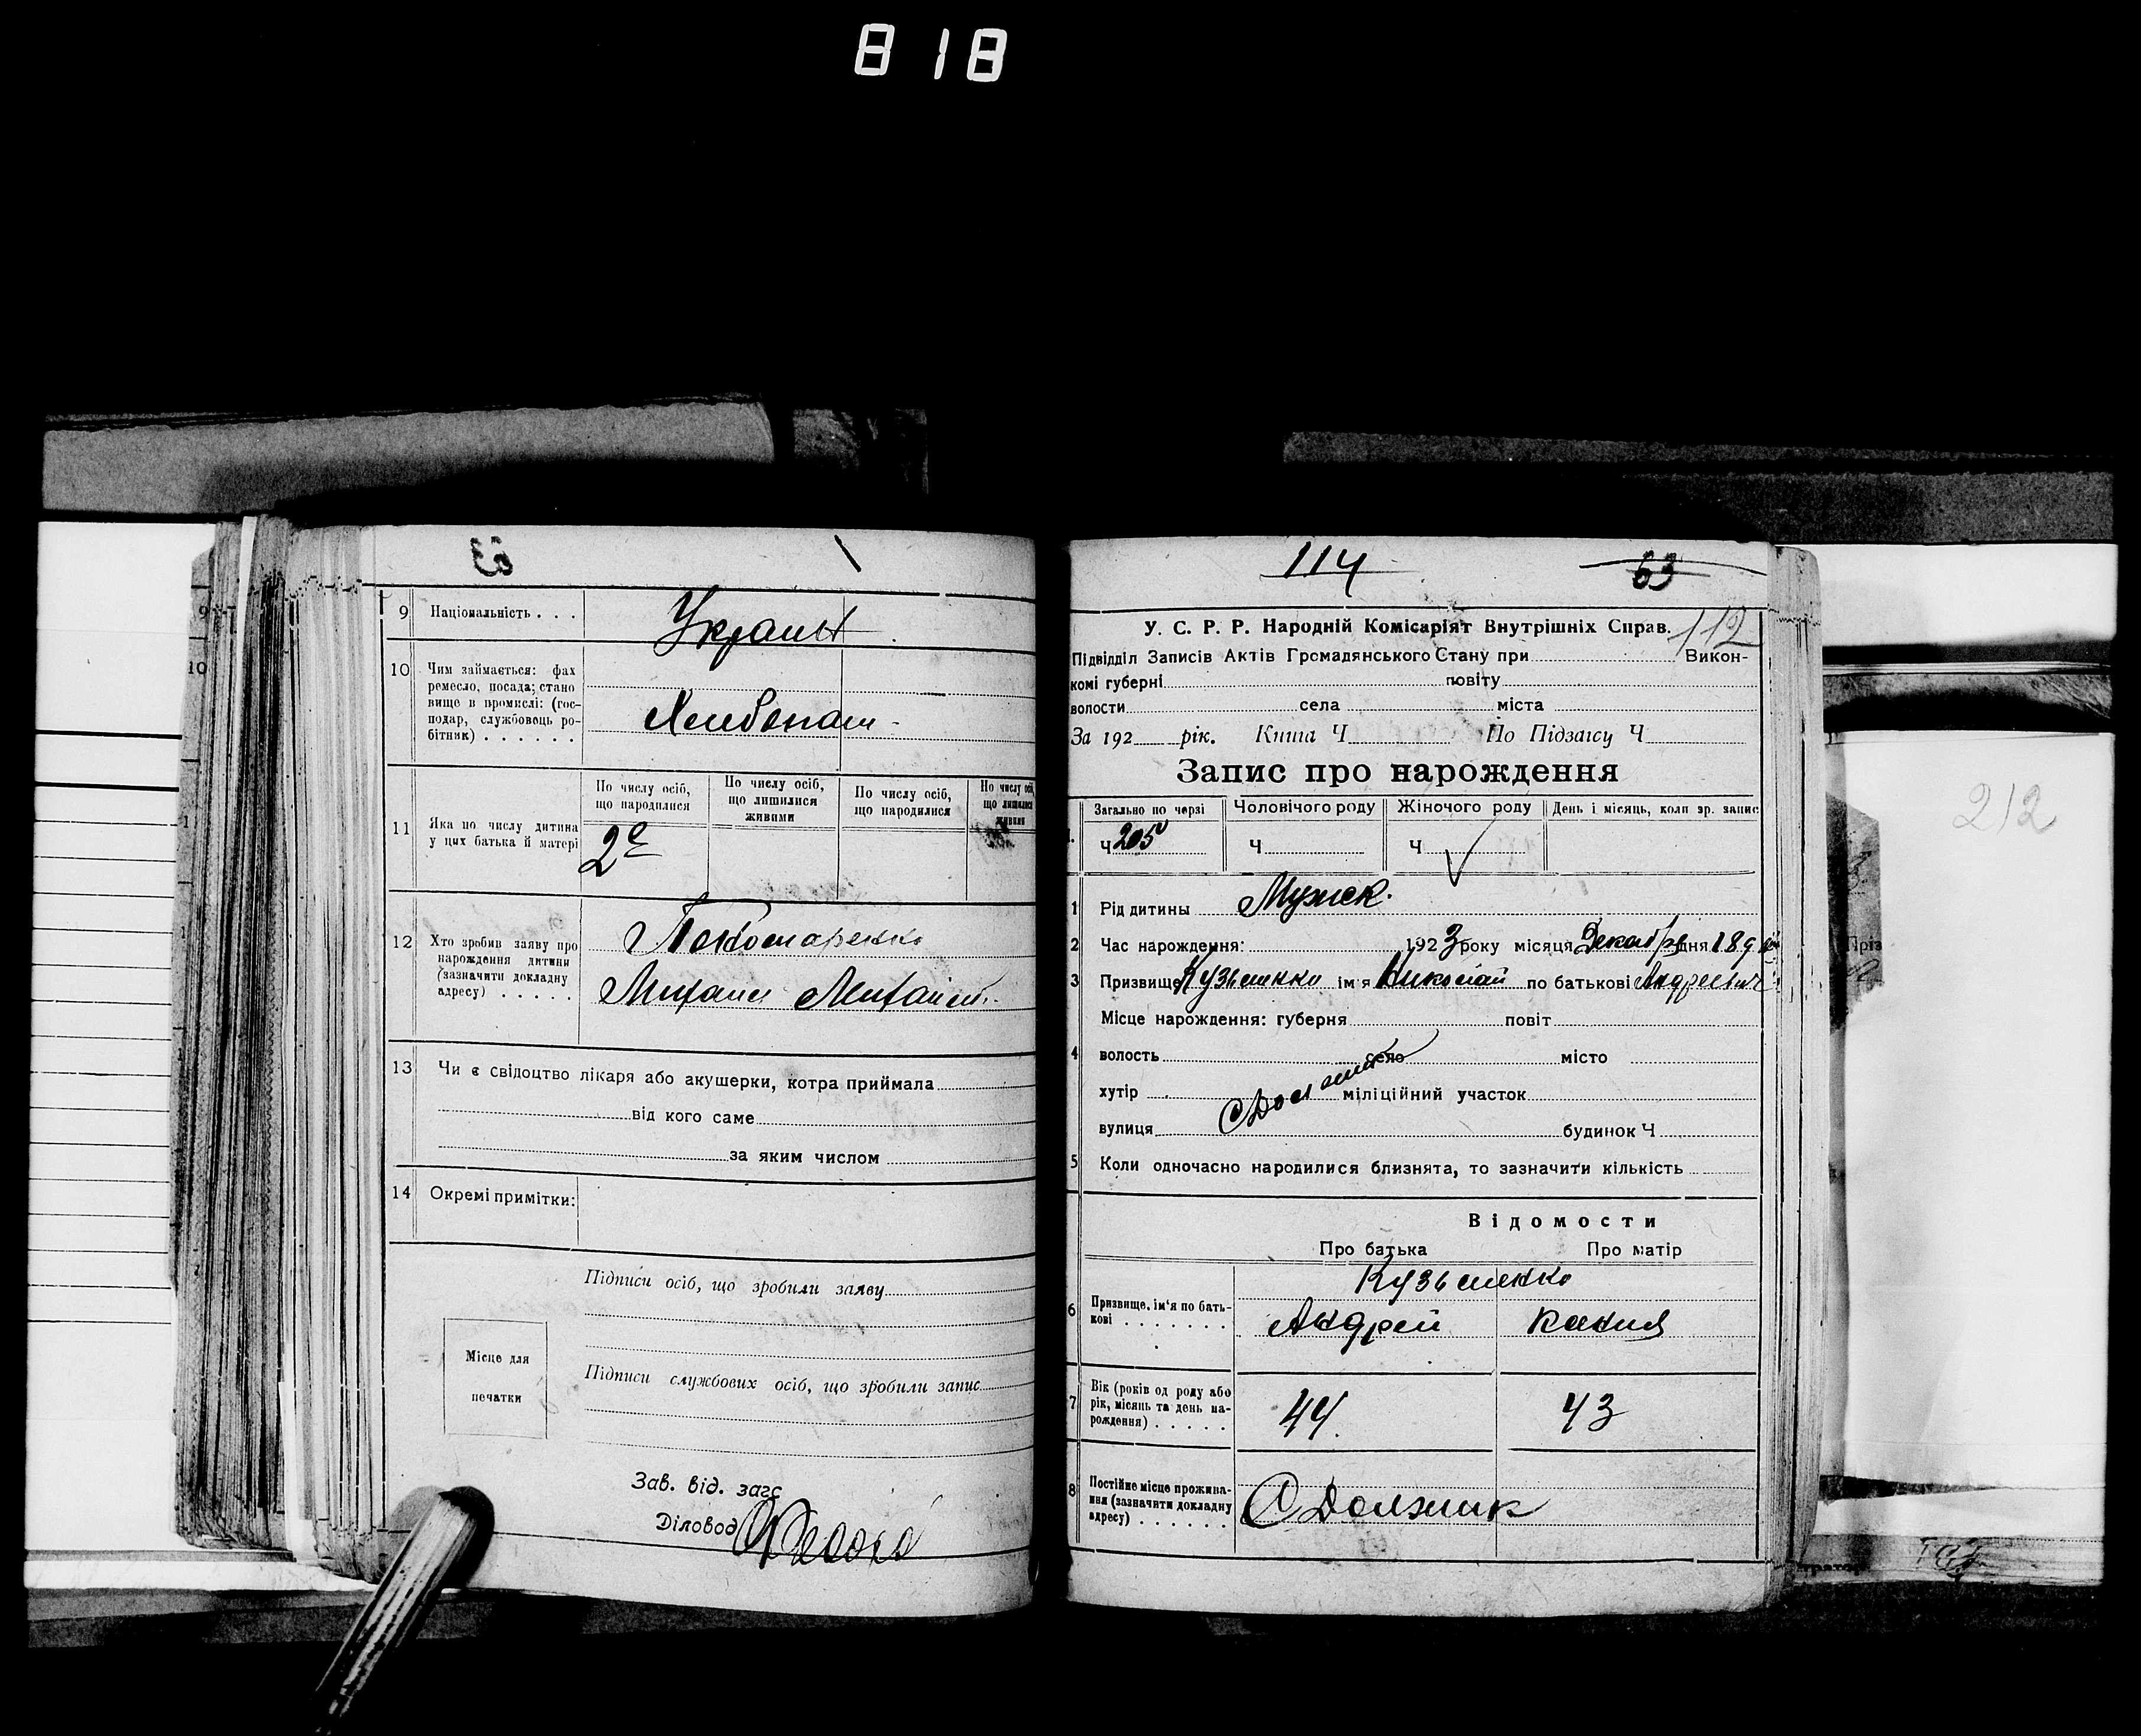 818
63
9 Національність . . . Украины
10 Чим займається: фах
ремесло, посада; стано
вище в промислі: (гос-
подар, службовець ро-
бітник) . . . . . . Хлебопаш-
11 Яка по числу дитина
у цих батька й матері
По числу осіб,
що народилися
По числу осіб,
що лишилися
живими
По числу осіб,
що народилися
По числу осіб,
що лишилися
живими
2е
12 Хто зробив заяву про
нарождення дитини
(зазначити докладну
адресу) . . . . .
Пономаренко
Михаил
13 Чи є свідоцтво лікаря або акушерки, котра приймала
від кого саме
за яким числом
14 Окремі примітки:
Підписи осіб, що зробили заяву
Місце для
печатки
Підписи службових осіб, що зробили запис
Зав. від. загс
Діловод
114 63
112
У. С. Р. Р. Народній Комісаріят Внутрішніх Справ.
Підвідділ Записів Актів Громадянського Стану при Викон-
комі губерні повіту
волости села міста
За 192 рік. Книга Ч По Підзагсу Ч
Запис про нарождення
Загально по черзі Чоловічого роду Жіночого роду День і місяць, коли зр. запис
Ч 205 Ч Ч
1 Рід дитины Мужск.
2 Час нарождення: 1923 року місяця Декабря дня 18
3 Призвище Кузьменко ім'я Николай по батькові Андреевич
Місце нарождення: губерня повіт
4 волость село місто
хутір міліційний участок
вулиця будинок Ч
5 Коли одночасно народилися близнята, то зазначити кількість
Відомости
Про батька Про матір
6 Призвище, ім'я по бать-
кові . . . . . . .
Кузьменко
Андрей Ксения
7 Вік (років од роду або
рік, місяць та день на-
рождення) . . . . . 44. 43
8 Постійне місце прожива-
ння (зазначити докладну
адресу) . . . . . . С Должик
212